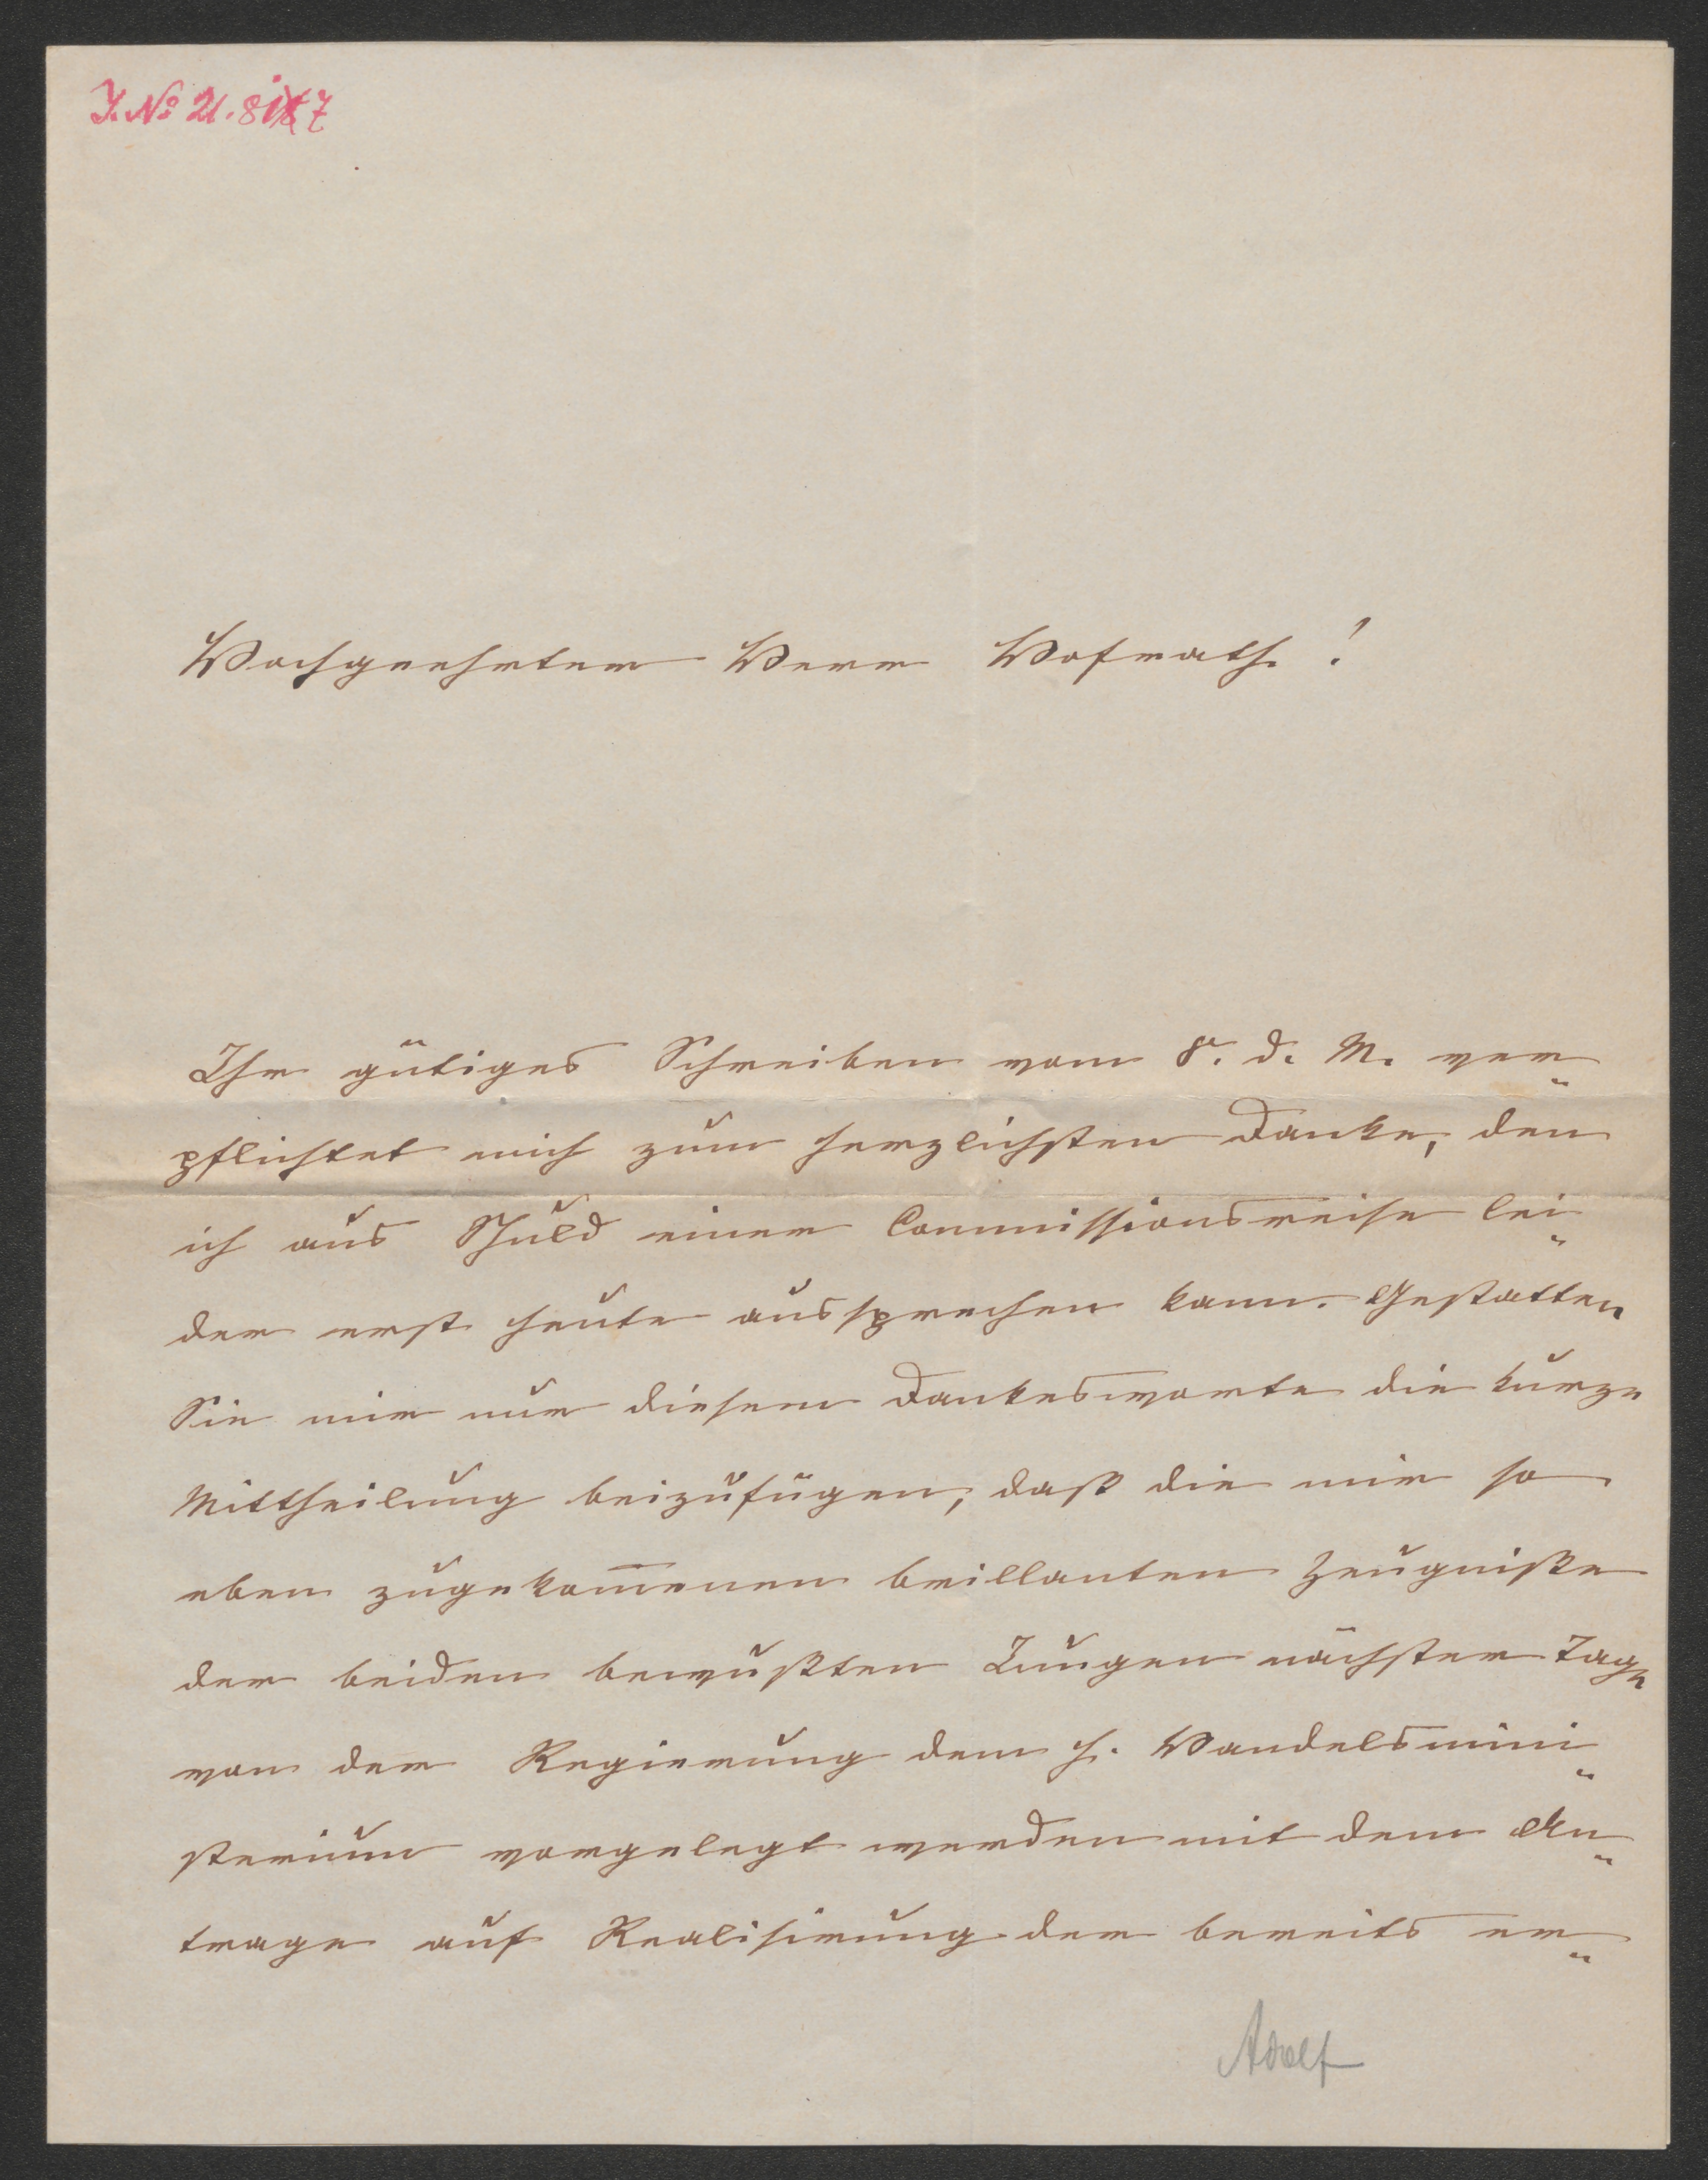 J. No 21.817
Hochgeehrter Herr Hofrath!
Ihr gütiges Schreiben vom 8. d. M. ver-
pflichtet mich zum herzlichsten Danke, den
ich aus Schuld einer Commissionsreise lei-
der erst heute aussprechen kann. Gestatten
Sie mir nur diesem Dankesworte die kurze
Mittheilung beizufügen, daß die mir so
eben zugekom̄enen brillanten Zeugniße
der beiden bewußten Jungen nächster Tage
von der Regierung dem h. Handelsmini-
sterium vorgelegt werden mit dem An-
trage auf Realisirung der bereits er-
Adolf